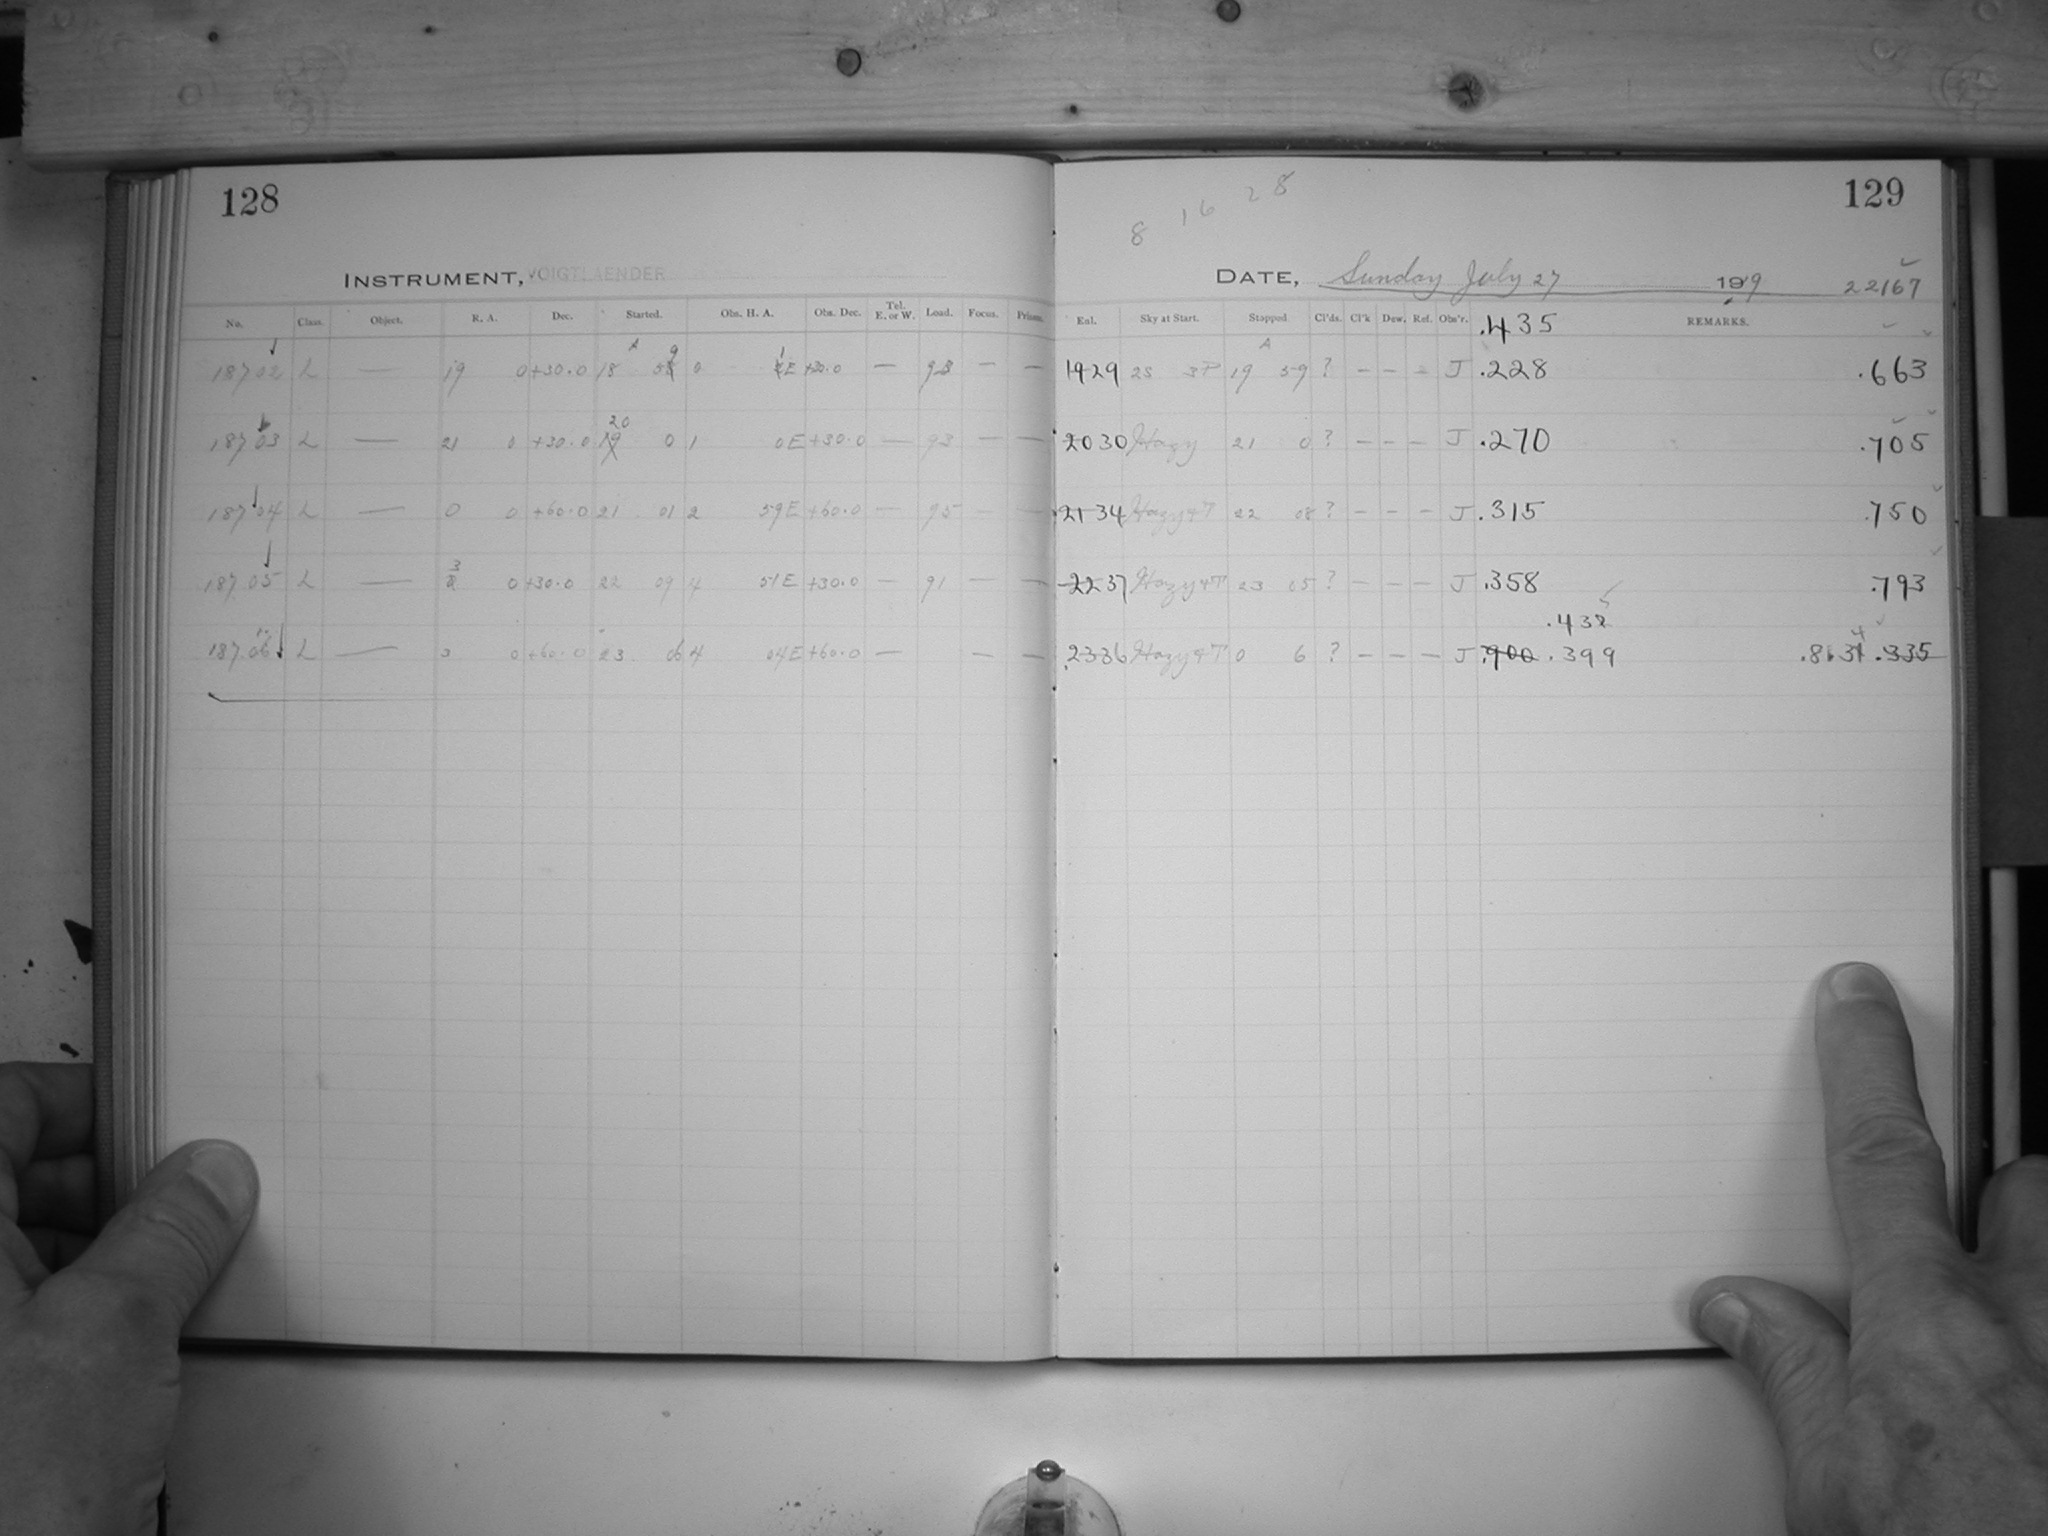 128
INSTRUMENT, VOIGTLAENDER
No. Class. Object. R. A. Dec. Started. Obs. H. A. Obs. Dec. Tel. E. or W. Load. Focus. Prisms.
18702 L — 19 0 +30.0 18 59 0 1E +30.0 — 93 — —
18703 L — 21 0 +30.0 20 0 1 0E +30.0 — 93 — —
18704 L — 0 0 +60.0 21 01 2 59E +60.0 — 95 — —
18705 L — 3 0 +30.0 22 09 4 51E +30.0 — 91 — —
18706 L — 0 +60.0 23 06 4 04E +60.0 — — —
129
8 16 28
DATE, Sunday July 27 1919 22167
Enl. Sky at Start. Stopped. Cl'ds. Cl'k Dew. Ref. Obs'r. .435 REMARKS.
1929 25 3T 19 59 ? — — — J .228 .663
2030 Hazy 21 0 ? — — — J .270 .705
2134 Hazy 4T 22 08 ? — — — J .315 .750
2237 Hazy 4T 23 05 ? — — — J .358 .793
.432
2336 Hazy 4T 0 6 ? — — — J .900 .399 .834 .335